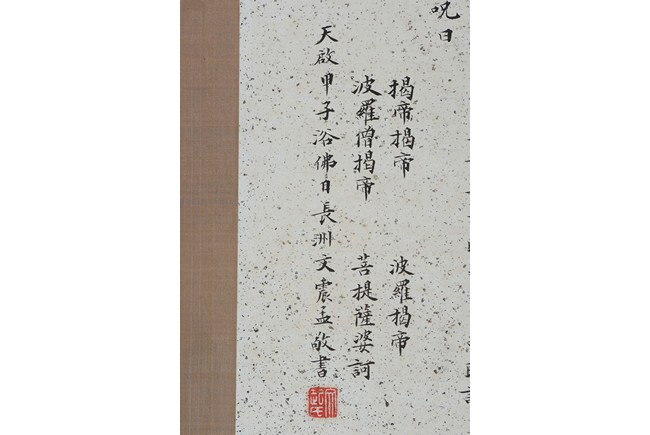 呪曰
揭帝揭帝 波羅揭帝
波羅僧揭帝 菩提薩婆訶
天啟甲子浴佛日長洲文震孟敬書